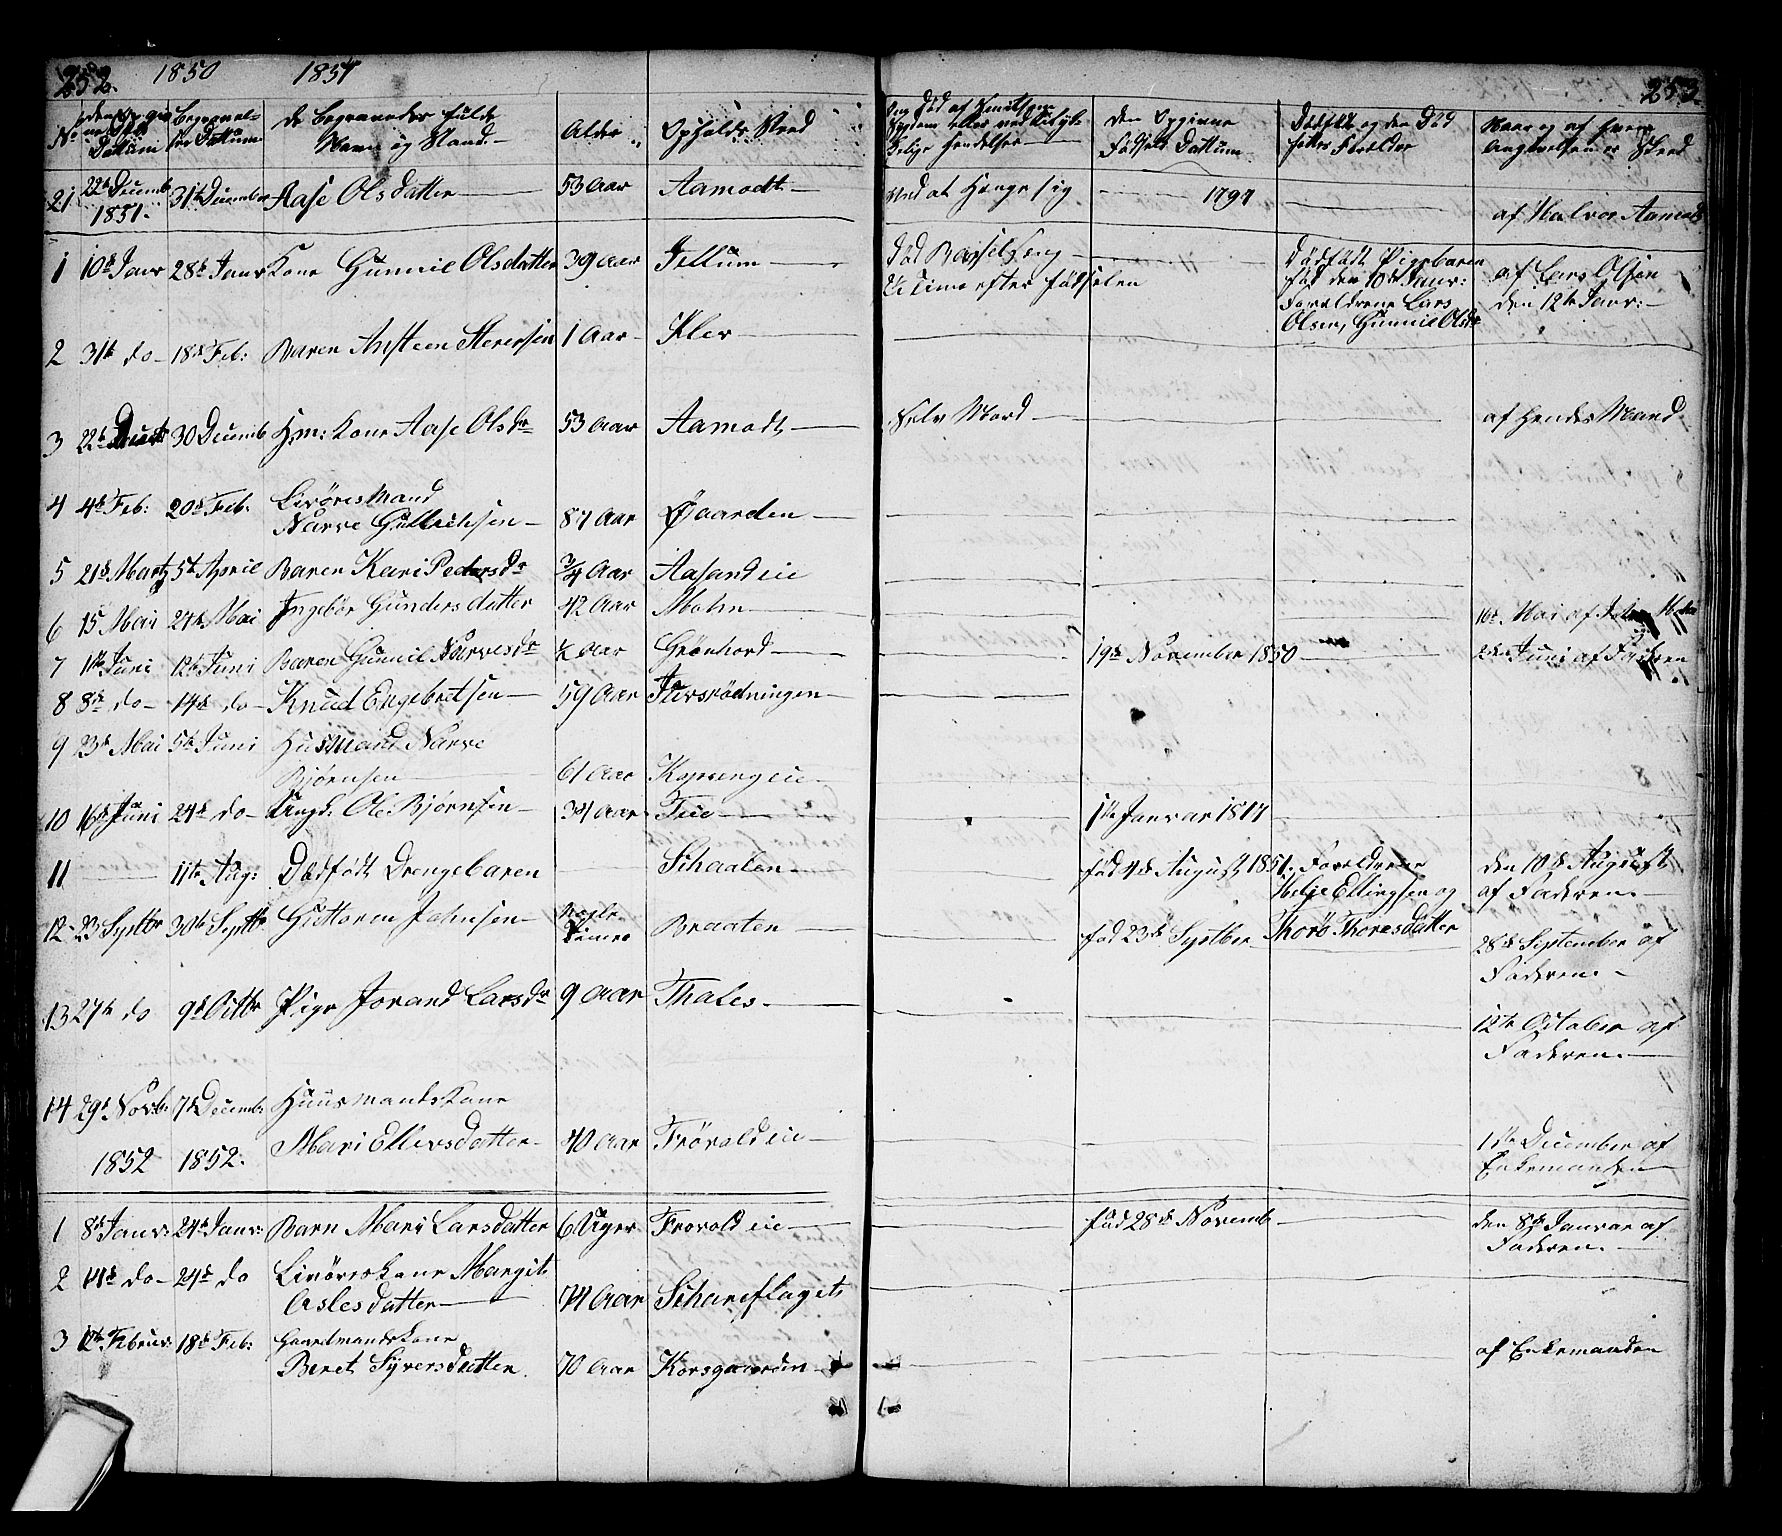 252. 1850 1851 253
No den Opgivne Døds Dattum Begravelses Dattum De Begravedes fulde Navn og Stand Alder Opholds Sted
den Opgivne Fødsels Dattum Dødfødt og den Død fødtes Foreldre Naar og af hvem Angivelsen er Skeed
21 22de Decemb 31te December Aase Olsdatter 53 Aar Aamodt ved at Hænge sig 1797 af Halvor Aamodt
1851.
1 10de Janr 28de Janr Kone Gunnil Olsdatter 39 Aar Jellum død Barselseng
2½ Time efter fødselen
Dødfødt Pigebaren
fød den 10de Janr:
Foreldrene Lars
Olsen, Gunnil Olsdr
af Lars Olsen
den 12te Janr:
2 31te do 18de Feb: Baren Ansteen Sterersen 1 Aar Klev
3 22de Decbr 30 Decemb Hm: Kone Aase Olsdr 53 Aar Aamodt Selv Mord af Hendes Mand
4 4de Feb: 20de Feb. Livøresmand
Narve Gulleichsen 87 Aar Øgaarden
5 21de Martz 5te April Baren Kari Pedersdr ¾ Aar Aasandeie
6 15 Mai 27de Mai Ingebør Gundersdatter 42 Aar Mohn 16de Mai af
7 11te Juni 12te Juni Baren Gunnil Narvesdr ½ Aar Grønhord 19de November 1850 Juni af Faderen
8 8de do 14de do Knud Engebretsen 59 Aar Iversrødningen
9 23de Mai 5te Juni Husmand Narve
Bjørnsen 61 Aar Kopsengeie
10 16de Juni 24de do Ungk. Ole Bjørnsen 34 Aar Tue 1te Januar 1817
11 11te Aug: Dødfødt Drengebaren Schaalen fød 4de August 1851. Foreldrene
Helje Ellingsen og
Thorø Thoresdatter
den 10de August
af Faderen
12 23 Septbr 30te Septbr Guttorm Johnsen Nogle Timer Braaten fød 23de Septber 28de September af
Faderen.
13 27te do 9de Octbr Pige Jorand Larsdr 9 Aar Thales 12te October af
Faderen.
14 29de Novb: 7de Decemb: Huusmandskone
Mari Ellevsdatter 40 Aar Frövoldeie 1te December af
Enkemanden
1852 1852.
1 8de Janv: 24de Janv: Barn Mari Larsdatter 6 Uger Frovoldeie fød 28de Novemb den 8de Januar af
Faderen.
2 14de do 24de do Livøreskone Margit
Aslesdatter 74 Aar Schareflaget
3 Februr: 18de Feb: Gaardmandskone
Beret Syversdatter 70 Aar Korsgaarden af Enkemanden